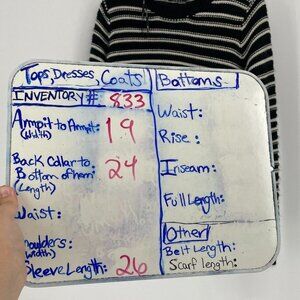 Tops, Dresses, Coats
INVENTORY #: 833
Armpit to Armpit: 19
(Width)
Back Collar to
Bottom of hem: 24
(Length)
Waist:
houlders:
width)
Sleeve Length: 26
Bottoms
Waist:
Rise:
Inseam:
Full Length:
Other
Belt Length:
Scarf length: